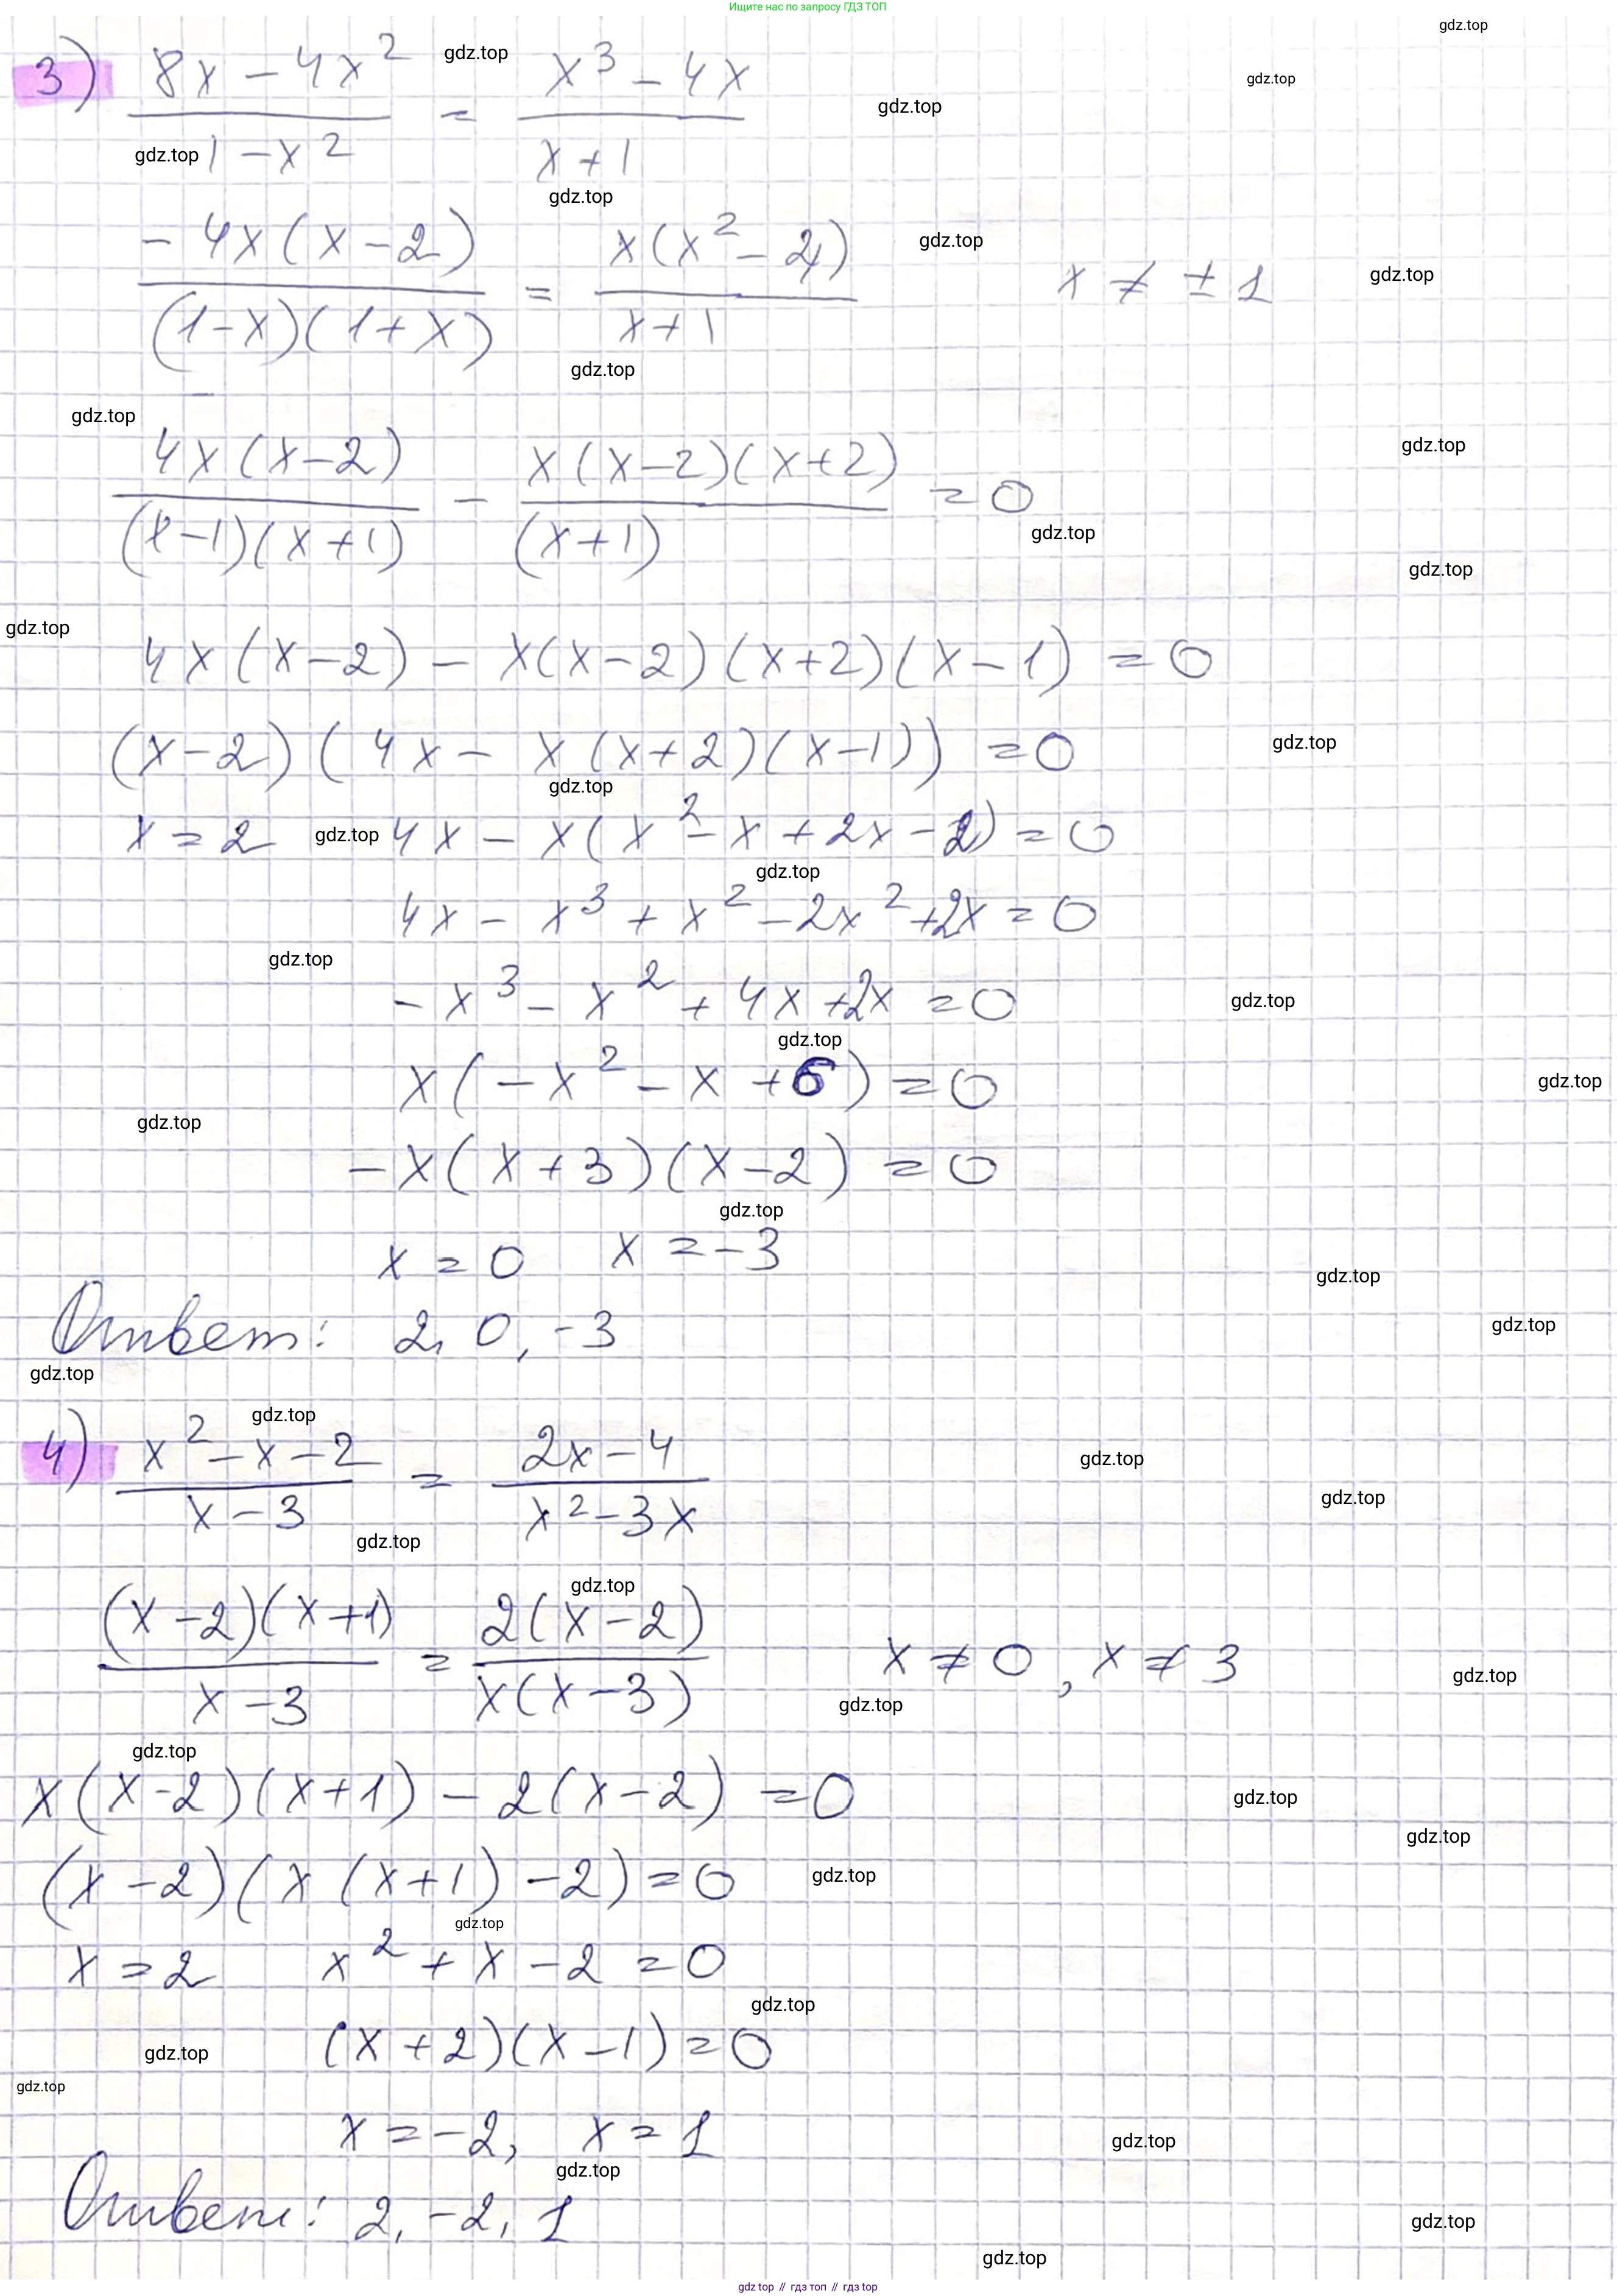 Ищите нас по запросу ГДЗ ТОП
3) (8x - 4x²)/(1 - x²) = (x³ - 4x)/(x + 1)
(-4x(x - 2))/((1 - x)(1 + x)) = (x(x² - 4))/(x + 1)    x ≠ ± 1
(4x(x - 2))/((x - 1)(x + 1)) - (x(x - 2)(x + 2))/((x + 1)) = 0
4x(x - 2) - x(x - 2)(x + 2)(x - 1) = 0
(x - 2)(4x - x(x + 2)(x - 1)) = 0
x = 2    4x - x(x² - x + 2x - 2) = 0
4x - x³ + x² - 2x² + 2x = 0
-x³ - x² + 4x + 2x = 0
x(-x² - x + 6) = 0
-x(x + 3)(x - 2) = 0
x = 0    x = -3
Ответ: 2, 0, -3
4) (x² - x - 2)/(x - 3) = (2x - 4)/(x² - 3x)
((x - 2)(x + 1))/(x - 3) = (2(x - 2))/(x(x - 3))    x ≠ 0, x ≠ 3
x(x - 2)(x + 1) - 2(x - 2) = 0
(x - 2)(x(x + 1) - 2) = 0
x = 2    x² + x - 2 = 0
(x + 2)(x - 1) = 0
x = -2, x = 1
Ответ: 2, -2, 1
gdz top // гдз топ // gdz top